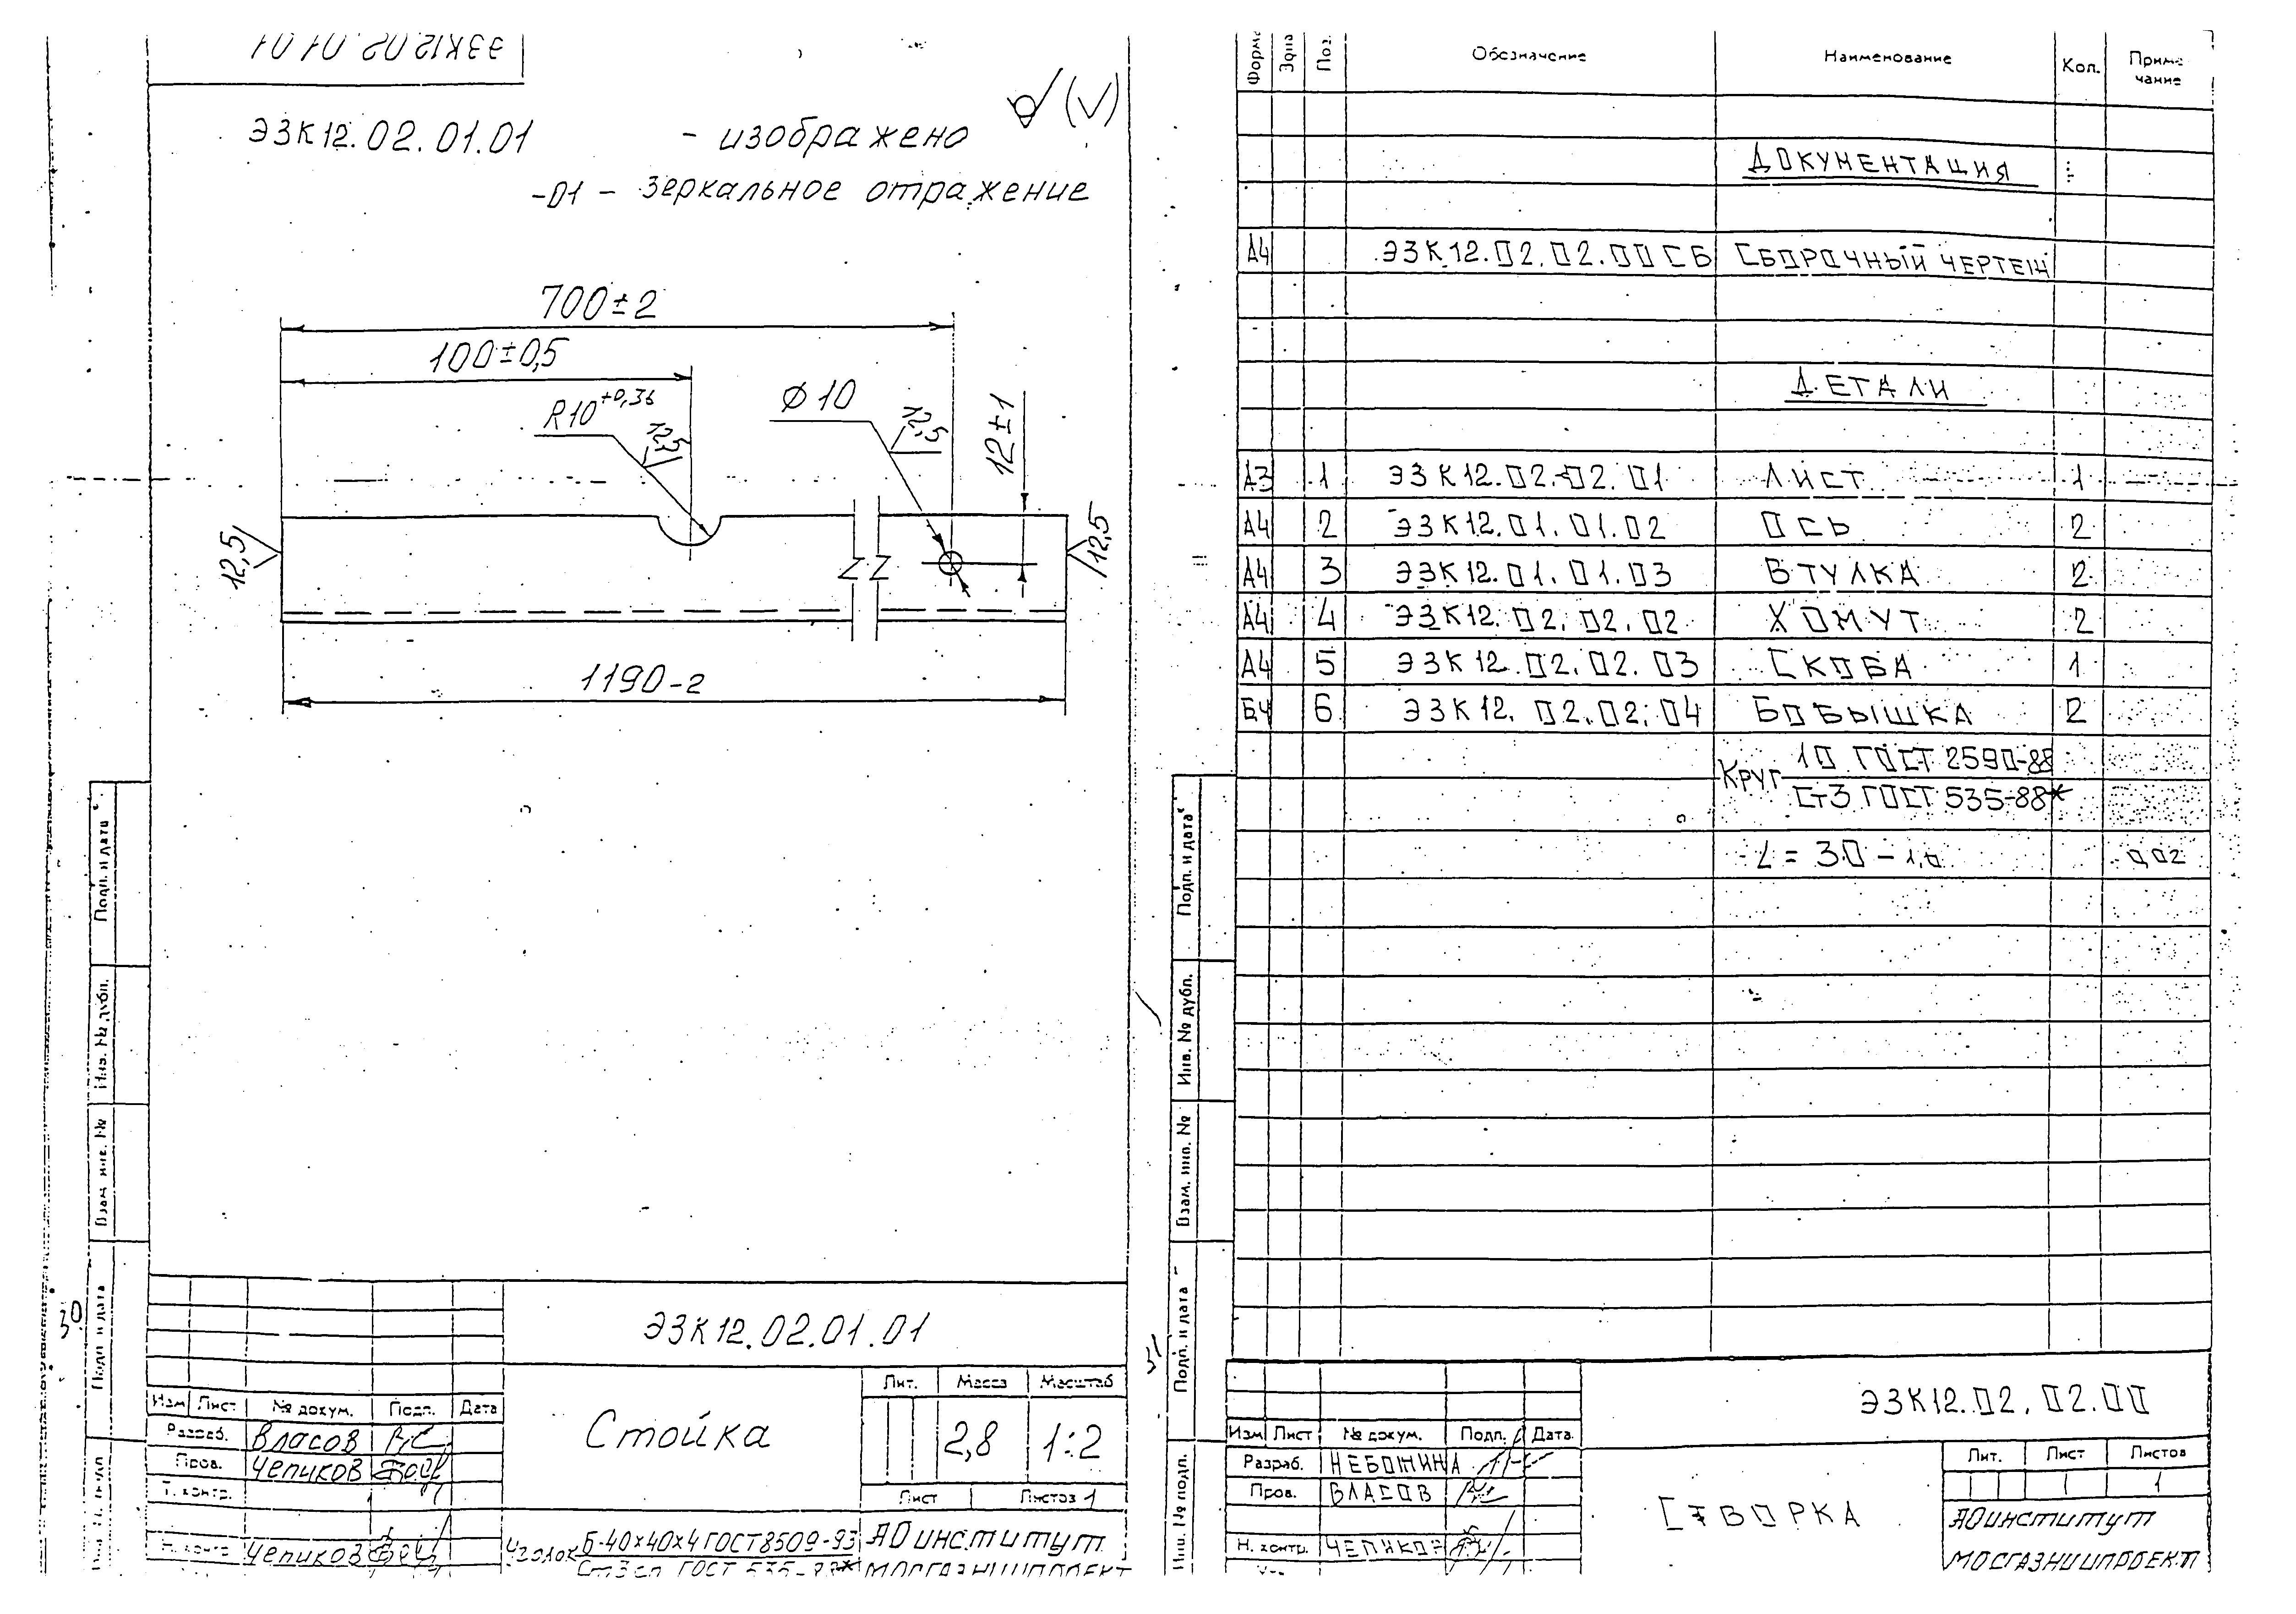 ЭЗК12.02.01.01
ЭЗК12.02.01.01 - изображено
-01 - зеркальное отражение
700±2
100±0,5
R10+0,36
12,5
Ø10
12,5
12±1
12,5
12,5
1190-2
Подп. и дата
Инв. № дубл.
Взам. инв. №
Подп. и дата
Инв. № подл.
30
ЭЗК12.02.01.01
Изм Лист № докум. Подп. Дата
Разраб. Власов
Пров. Чепиков
Т. контр.
Н. контр. Чепиков
Стойка
Лит. Масса Масштаб
2,8 1:2
Лист Листов 1
Уголок Б-40х40х4 ГОСТ 8509-93
Ст3сп ГОСТ 535-88*
АО институт
МОСГАЗНИИПРОЕКТ
Форма Зона Поз. Обозначение Наименование Кол. Приме чание
ДОКУМЕНТАЦИЯ
А4 ЭЗК12.02.02.00 СБ СБОРОЧНЫЙ ЧЕРТЕЖ
ДЕТАЛИ
А3 1 ЭЗК12.02.02.01 ЛИСТ 1
А4 2 ЭЗК12.01.01.02 ОСЬ 2
А4 3 ЭЗК12.01.01.03 ВТУЛКА 2
А4 4 ЭЗК12.02.02.02 ХОМУТ 2
А4 5 ЭЗК12.02.02.03 СКОБА 1
Б4 6 ЭЗК12.02.02.04 БОБЫШКА 2
Круг 10 ГОСТ 2590-88
Ст3 ГОСТ 535-88*
L = 30 - 1,0 0,02
Подп. и дата
Инв. № дубл.
Взам. инв. №
Подп. и дата
Инв. № подл.
ЭЗК12.02.02.00
Изм Лист № докум. Подп. Дата
Разраб. НЕБОЖИНА
Пров. ВЛАСОВ
Н. контр. ЧЕПИКОВ
СТВОРКА
Лит. Лист Листов
1
АО институт
МОСГАЗНИИПРОЕКТ